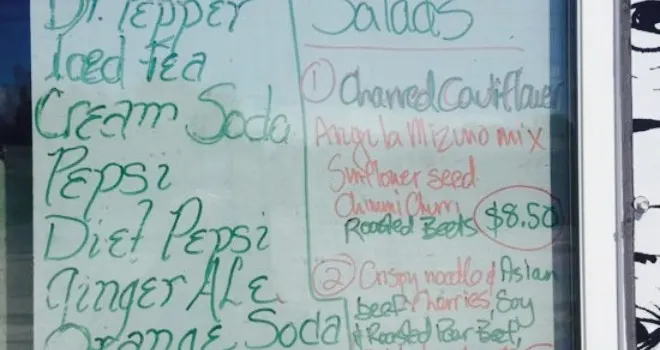 Dr. Pepper
Iced Tea
Cream Soda
Pepsi
Diet Pepsi
Ginger ALe
Orange Soda
Salads
① Charred Cauliflower
Arugula Mizuno mix
Sunflower seed
Chimi Churri
Roasted Beets $8.50
② Crispy noodle & Asian
beef, Soy
& Roasted Beet,